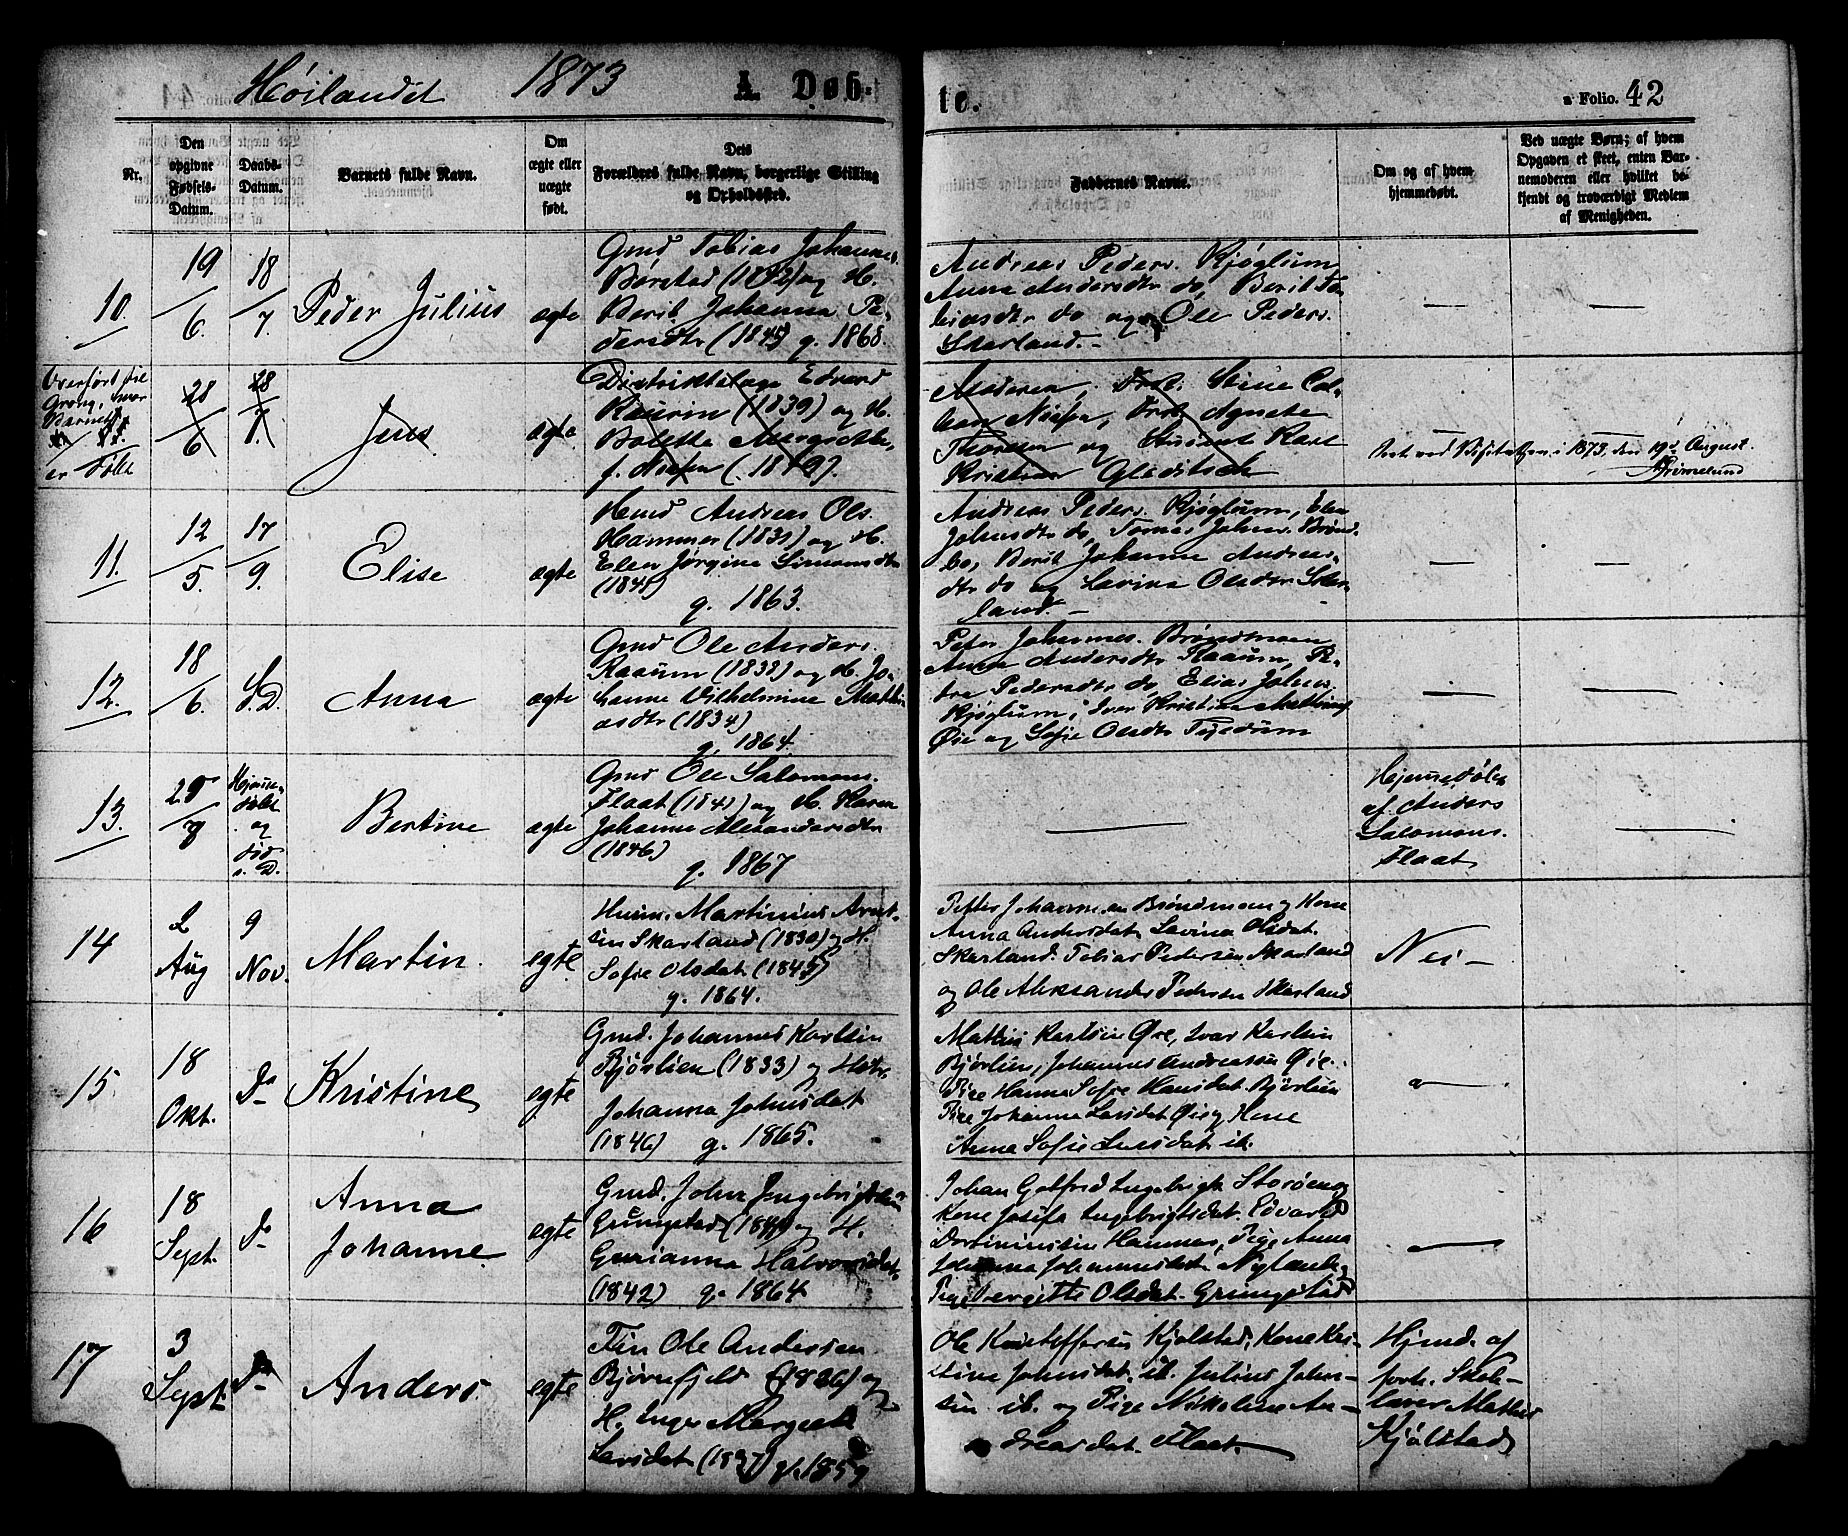 Høilandet 1873 A. Døb-
te.
a Folio. 42
Nr.
Den
opgivne
Fødsels-
Datum.
Daabs-
Datum.
Barnets fulde Navn.
Om
ægte eller
uægte
født.
Dets
Forældres fulde Navn, borgerlige Stilling
og Opholdssted.
Faddernes Navne.
Om og af hvem
hjemmedøbt.
Ved uægte Børn; af hvem
Opgaven er skeet, enten Bar-
nemoderen eller hvilket be-
kjendt og troværdigt Medlem
af Menigheden.
10.
19/6.
18/7.
Peder Julius
ægte
Gmd Tobias Johannes.
Børstad og H.
Berit Johanna Pe-
dersdtr (1845) g. 1868.
Andreas Peders. Kjøglum
Anna Andersdtr do, Berit To-
biasdtr do og Ole Peders.
Skarland.-
Overført til
Grong, hvor
Barnet
er døbt
28/6
28/7.
Jens
ægte
Distriktslæge Edvard
Kaurin (1839) og H.
Bolette Margrethe
f. Nissen (1849).
Moderen, Frk. Stine
Nissen, Frk Agnete
Thoresen og Student Karl
Kristian Gleditsch
Seet ved Visitatsen i 1873, den 19de August.
Grimelund
11.
12/5.
17/9.
Elise
ægte
Hmd Andreas Ols.
Hammer og H.
Elen Jørgine Simonsdtr
(1841)
g. 1863.
Andreas Peders. Kjøglum, Elen
Johnsdtr do, Johns. Brønd-
bo, Berit Johanna Andreas-
dtr do og Lavina Olsdtr Skar-
land.-
12.
18/6.
S.D.
Anna
ægte
Gmd Ole Anders.
Raaum (1838) og H. Jo-
hanne Vilhelmine Mathi-
asdtr (1834)
g. 1864.
Peter Johannes. Brøndmoen
Anna Andersdtr Raaum, Pe-
tra Pedersdtr do, Elias Johns.
Kjøglum, Iver Kristian
Øie og Sofie Olsdtr
13.
29/8
Hjemme-
døbt
og
død
s. D.
Bertine
ægte
Gmd Ole Salomons.
Flaat (1841) og H. Karen
Johanna Alexandersdtr
(1846)
g. 1867
Hjemmedøbt
af Anders
Salomons.
Flaat
14
2
Aug
9
Nov.
Martin.
egte
Husm. Martinius Arnt-
sen Skarland (1830) og H.
Sofie Olsdat. (1845)
g. 1864.
Petter Johannesen Brøndmo og Kone
Anna Andersdat. Lavina Olsdat.
Skarland. Tobias Pedersen Skarland
og Ole Aleksander Pedersen Skarland
Nei -
15
18
Okt.
Do
Kristine
egte
Gmd. Johannes Karlsen
Bjørlien (1833) og Hstr.
Johanna Johnsdat
(1846) g. 1865.
Mathis Karlsen Øie, Ivar Karlsen
Bjørlien, Johannes Andreassen Øie.
Pige Hanna Sofie Hansdat. Bjørlien
Pige Johanna Larsdat Øie og Kone
Anna Sofie Larsdat. ib.
16
18
Sept.
Do
Anna
Johanne
egte
Gmd. John Ingebrigtsen
Grungstad (1841) og H.
Gurianna Halvorsdat.
(1842) g. 1864
Johan Gotfred Ingebrigts. Storøen og
Kone Josefa Ingebrigtsdat. Edvard
Hammer, Pige Anna
Johanna Johannesdat. Nyland og
Pige Bergitte Olsdat. Grungstad
17
3
Sept.
Do
Anders.
egte
Fin Ole Andersen
Bjørnefjeld (1826) og
H. Inger Margrete
Larsdat (1827) g. 1859
Ole Kristoffersen Kjølstad, Kone Kri-
stina Johnsdat. ib. Julius John-
sen ib. og Pige Nikoline An-
dreasdat. Flaat.
Hjmd. af
forh. Skole-
lærer Mathis
Kjølstad